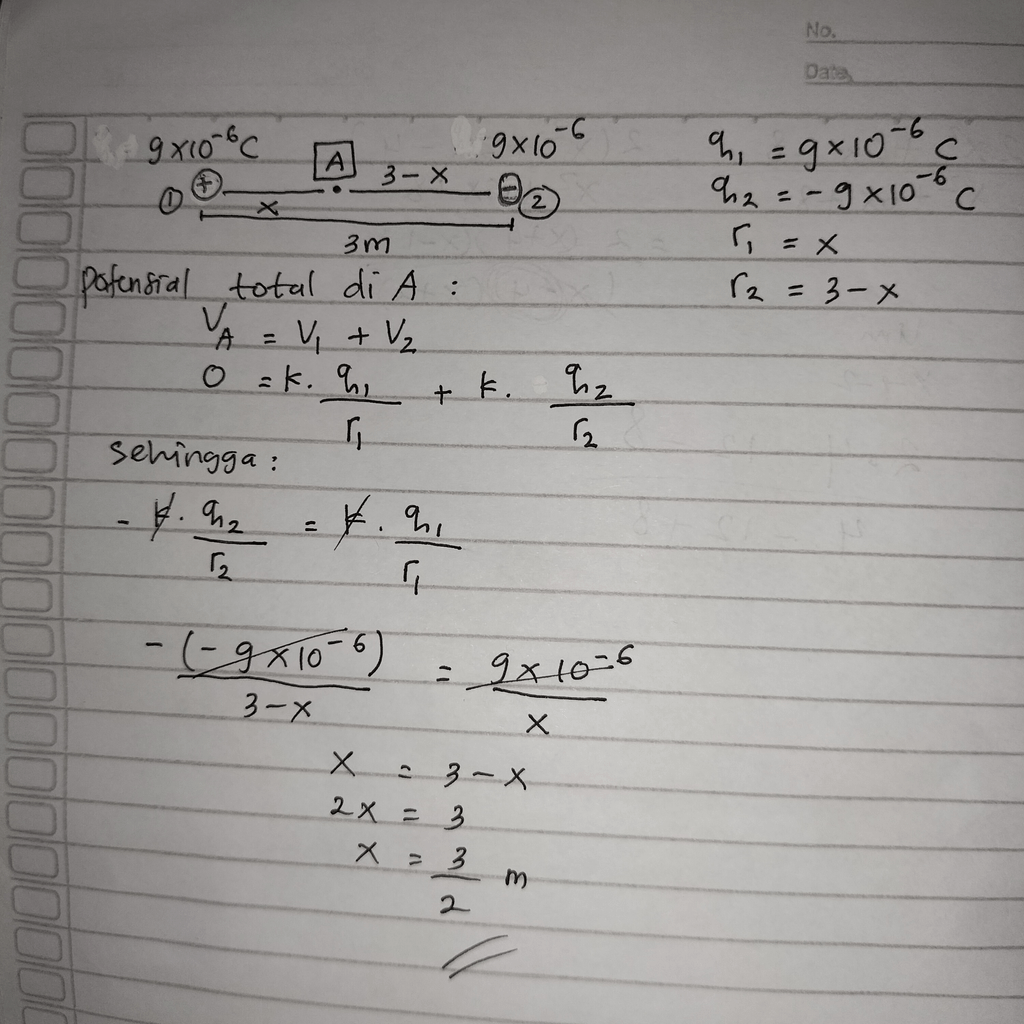 No.
Date
9×10⁻⁶ C A 9×10⁻⁶
① + x 3 − x − ②
3m
q₁ = 9×10⁻⁶ C
q₂ = −9×10⁻⁶ C
r₁ = x
r₂ = 3 − x
potensial total di A :
V_A = V₁ + V₂
0 = k. q₁/r₁ + k. q₂/r₂
sehingga :
− k. q₂/r₂ = k. q₁/r₁
−(−9×10⁻⁶)/3−x = 9×10⁻⁶/x
x = 3 − x
2x = 3
x = 3/2 m